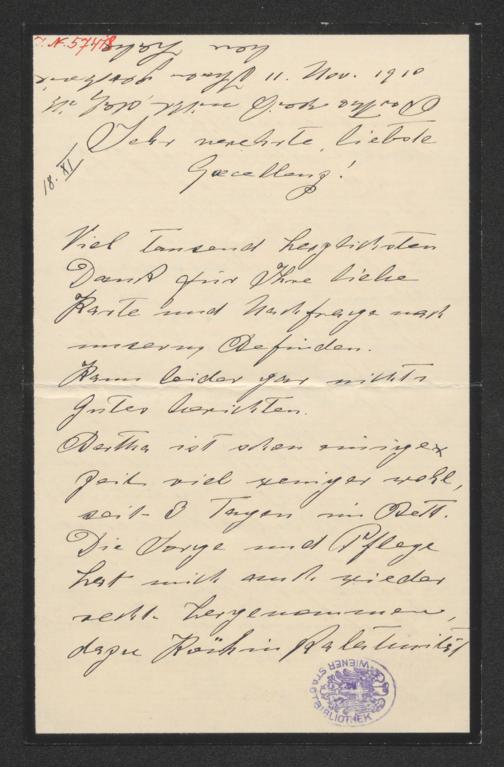 J. N. 57478
11. Nov. 1910
18. XI
Sehr verehrte, liebste
Excellenz!
Viel tausend herzlichsten
Dank für Ihre liebe
Karte und Nachfrage nach
unserm Befinden.
Kann leider gar nichts
gutes berichten.
Bertha ist schon einige
Zeit viel weniger wohl,
seit 3 Tagen im Bett.
Die Sorge und Pflege
hat mich auch wieder
recht hergenommen,
dazu Köchin Kalamität
WIENER STADTBIBLIOTHEK